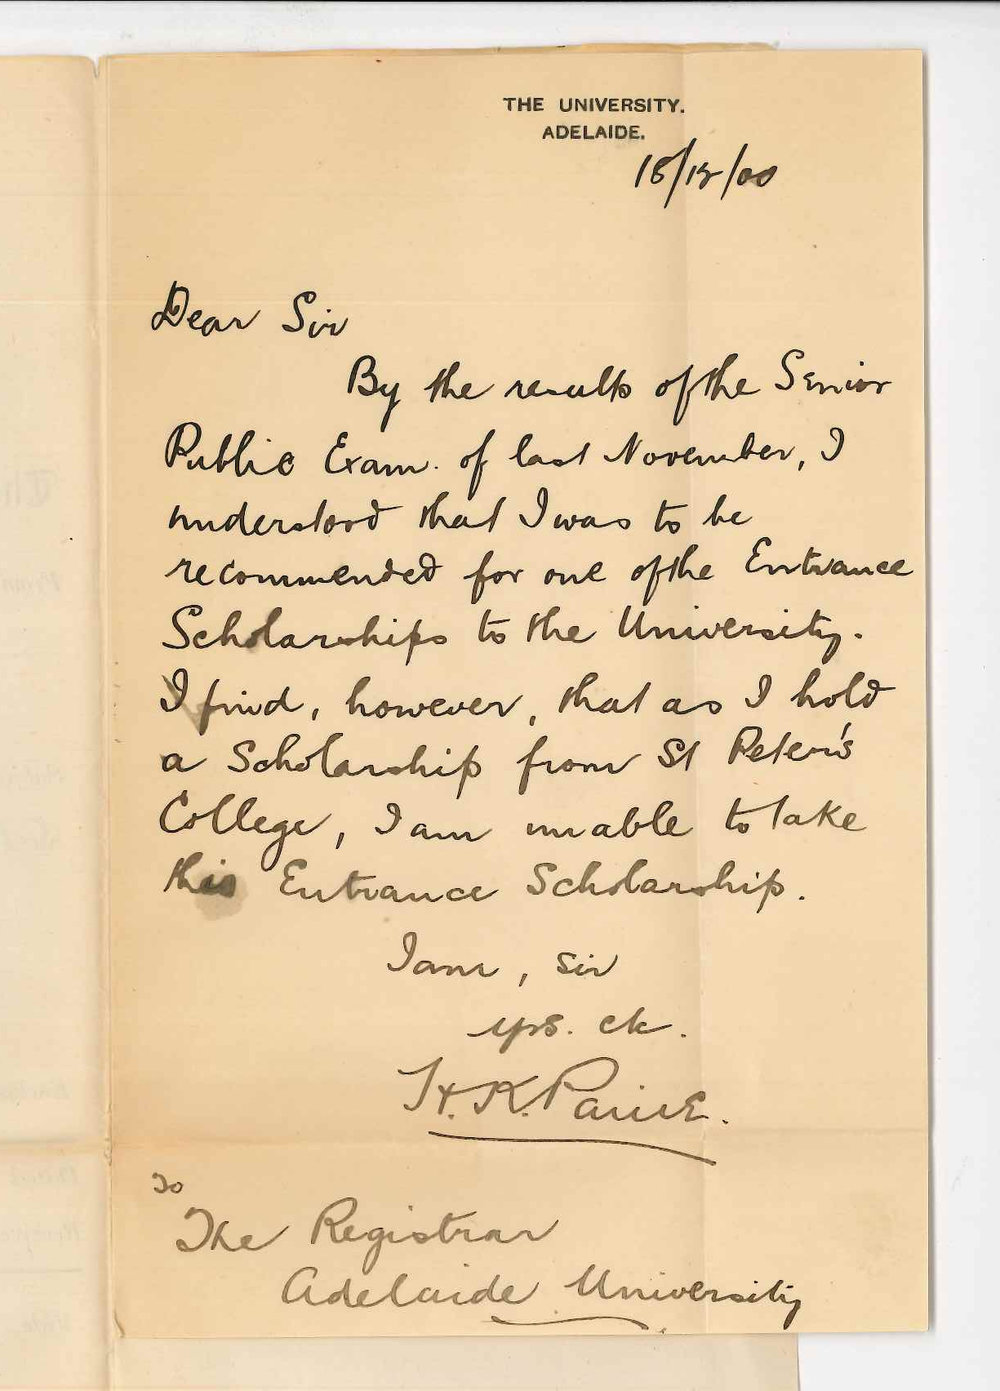 THE UNIVERSITY.
ADELAIDE.
18/12/00
Dear Sir
By the results of the Senior
Public Exam. of last November, I
understood that I was to be
recommended for one of the Entrance
Scholarships to the University.
I find, however, that as I hold
a Scholarship from St Peter's
College, I am unable to take
this Entrance Scholarship.
I am, sir
yrs. etc.
H. K. Paine.
To
The Registrar
Adelaide University